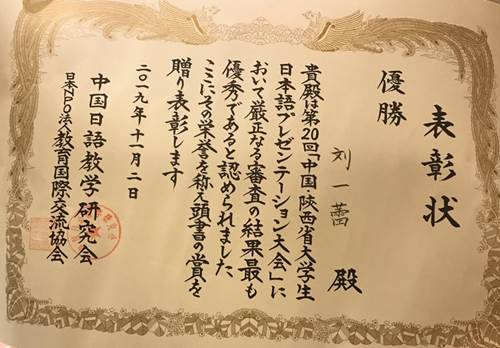 表彰状
優勝
刘一蕾 殿
貴殿は第20回「中国・陝西省大学生
日本語プレゼンテーション大会」に
おいて厳正なる審査の結果最も
優秀であると認められました
ここにその栄誉を称え頭書の賞を
贈り表彰します
二〇一九年十一月二日
中国日語教学研究会
日本NPO法人教育国際交流協会